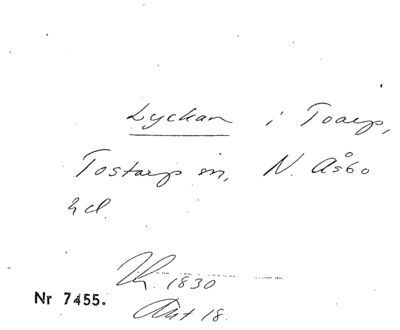 Lyckan i Toarp,
Tostarp sn, N. Åsbo
hd.
Th. 1830
Akt 18.
Nr 7455.